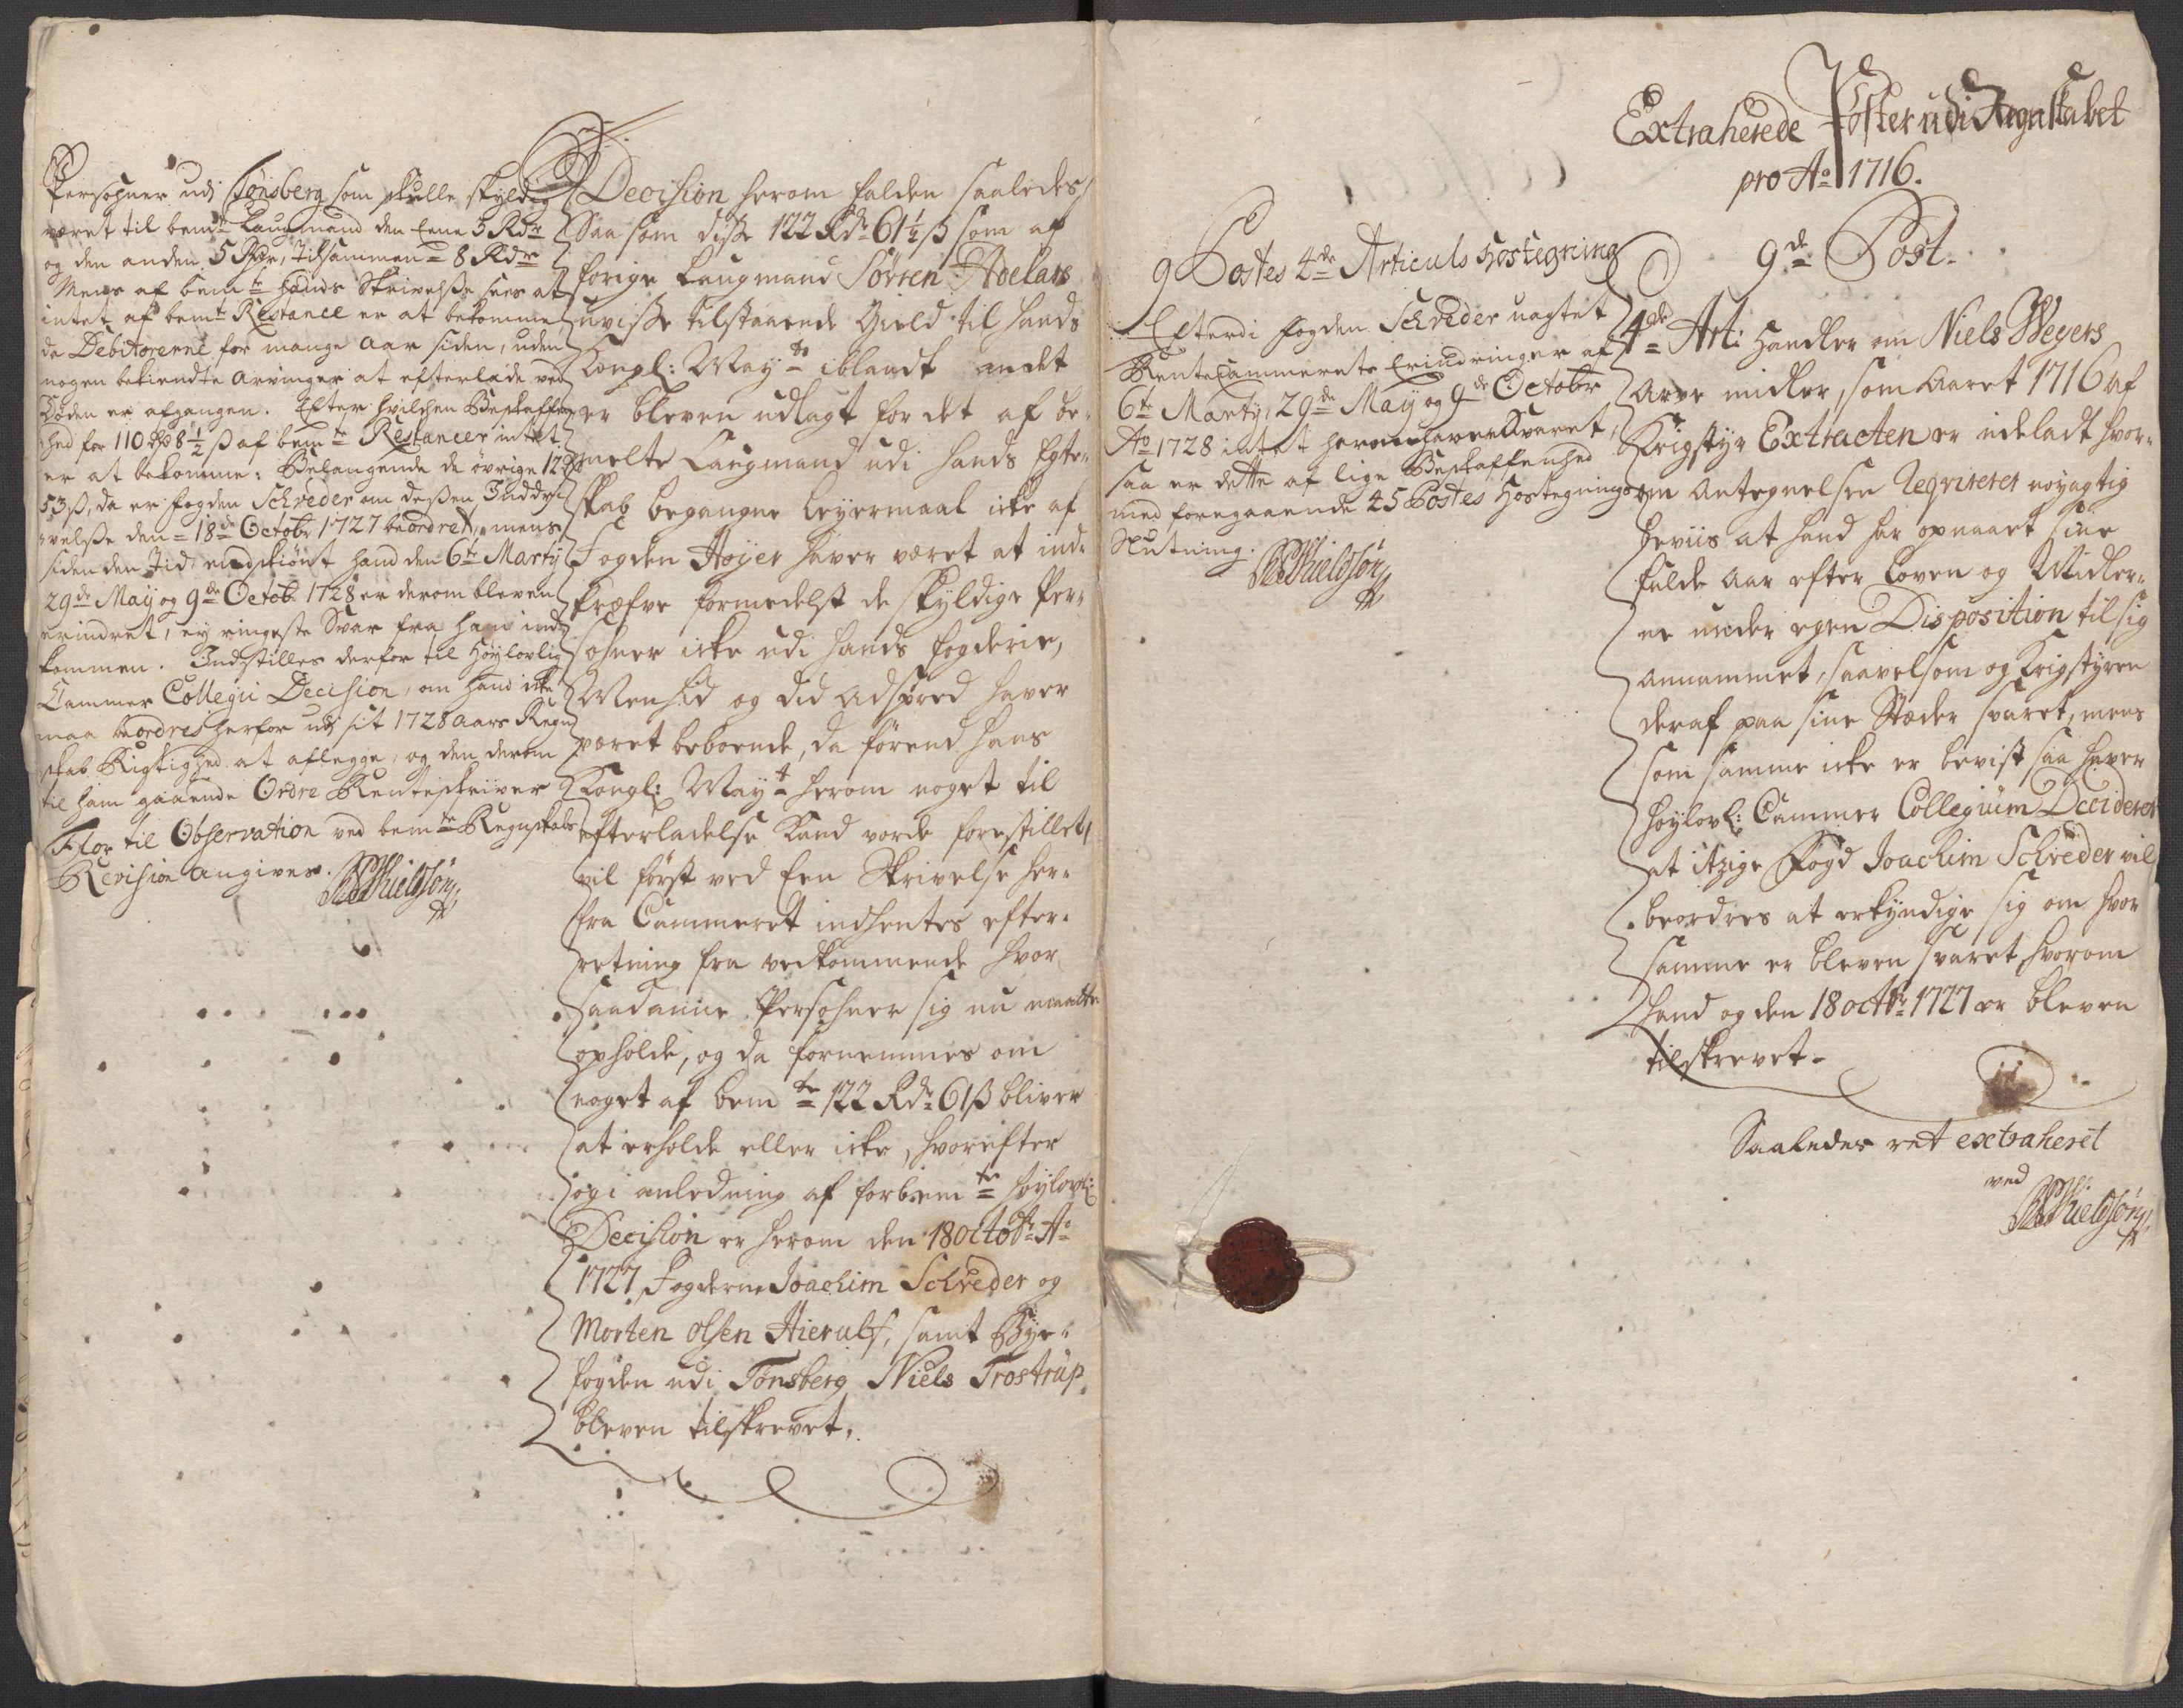 Persohner udi Tønsberg som skulle skyldig
været til bemte Laugmand den Eene 3 Rdr
og den anden 5 Rdr, Tilsammen = 8 Rdr
Mens af bemte hands Skrivelsse sees at
intet af bemte Restance er at bekomme
da Debitorerne for mange Aar siden, uden
nogen bekiendte Arvinger at efterlade ved
Døden er afgangen. Efter hvilchen Beskaffen
hed for 110 Rdr 8½ ß af bemte Restancer intet
er at bekomme: Belangende de øvrige 12 Rdr
53 ß, da er fogden Schreder om deßen Inddri
velsse den = 18de Octobr 1727 beordret, mens
siden den Tid uendskiønt hand den 6te Marty
29de May og 9de Octob: 1728 er derom bleven
erindret, ey ringeste Svar fra ham ind
kommen. Indstilles derfor til Høylovlig
Cammer Collegii Decision, om hand icke
maa beordres herfor udi sit 1728 Aars Regn
skab Rigtighed at aflegge, og den derom
til ham gaaende Ordre Renteskriver
Flor til Observation ved bemte Regnskabs
Revision Angives.

Decision herom falden saaledes
Saa som disse 122 Rdr 61½ ß som af
forige Laugmand Sørren Hoelars
uvisse tilstaaende Gield til hands
Kongl: May:ts iblandt andet
er bleven udlagt for det af be-
melte Laugmand udi hands Egte-
skab begangne Leyermaal icke af
Fogden Høyer haver været at ind-
kræfve formedelst de skyldige Per-
sohner icke udi hands fogderie,
Men hid og did adspred haver
været beboende, da førend hans
Kongl: May:t herom noget til
efterladelse kand vorde forestillet,
vil først ved Een Skrivelse her-
fra Cammeret indhentes efter-
retning fra vedkommende hvor
saadanne Persohner sig nu maatte
opholde, og da fornemmes om
noget af bemte 122 Rdr 61 ß bliver
at erholde eller icke, hvorefter
og i anledning af forbemte høylovl:
Decision er herom den 18 octobr Ao
1727 Fogderne Joachim Schreder og
Morten Olsen Hierulf, samt Bye-
fogden udi Tønsberg Niels Trostrup
bleven tilskrevet.

9 Postes 4de Articuls Hostegning
Efterdi fogden Schreder uagtet
Rente Cammerets Erindringer af
6te Marty, 29de May og 9de Octobr
Ao 1728 intet herom haver Svaret,
saa er dette af lige Beskaffenhed
med foregaaende 45 Postes Hostegnings
Slutning.

Extraherede Poster udi Regnskabet
pro Ao 1716.
9de Post.
4de Art: Handler om Niels Weyers
Arve midler, som Aaret 1716 af
Krigstyr Extracten er udeladt hvor-
om Antegnelsen Reqvireret nøyagtig
beviis at hand har opnaaet sine
fulde Aar efter Loven og Midler-
ne under egen Disposition til sig
annammet, saavelsom og Krigstyren
deraf paa sine Stæder svaret, mens
som samme icke er bevist saa haver
høylovl: Cammer Collegium Decideret
at itzige Fogd Joachim Schreder vil
beordres at erkyndige sig om hvor
samme er bleven svaret, hvorom
hand og den 18 octbr 1727 er bleven
tilskrevet.
Saaledes ret extraheret
ved